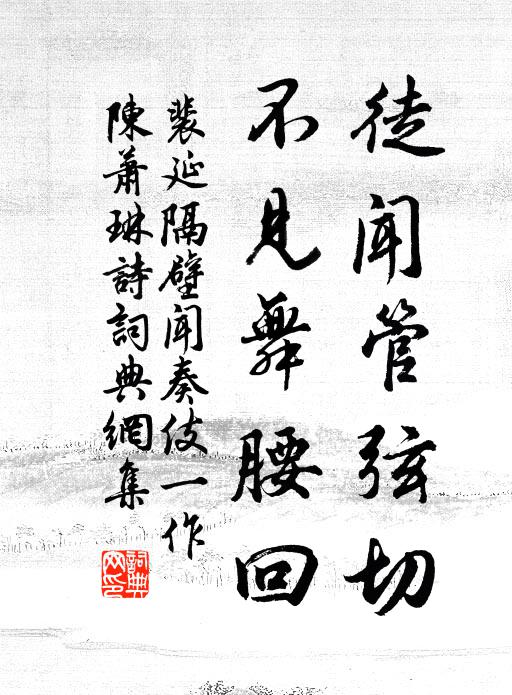 徒聞管弦切
不見舞腰回
裴延隔壁聞奏伎一作
陳蕭琳詩詞典網集
詞典網印